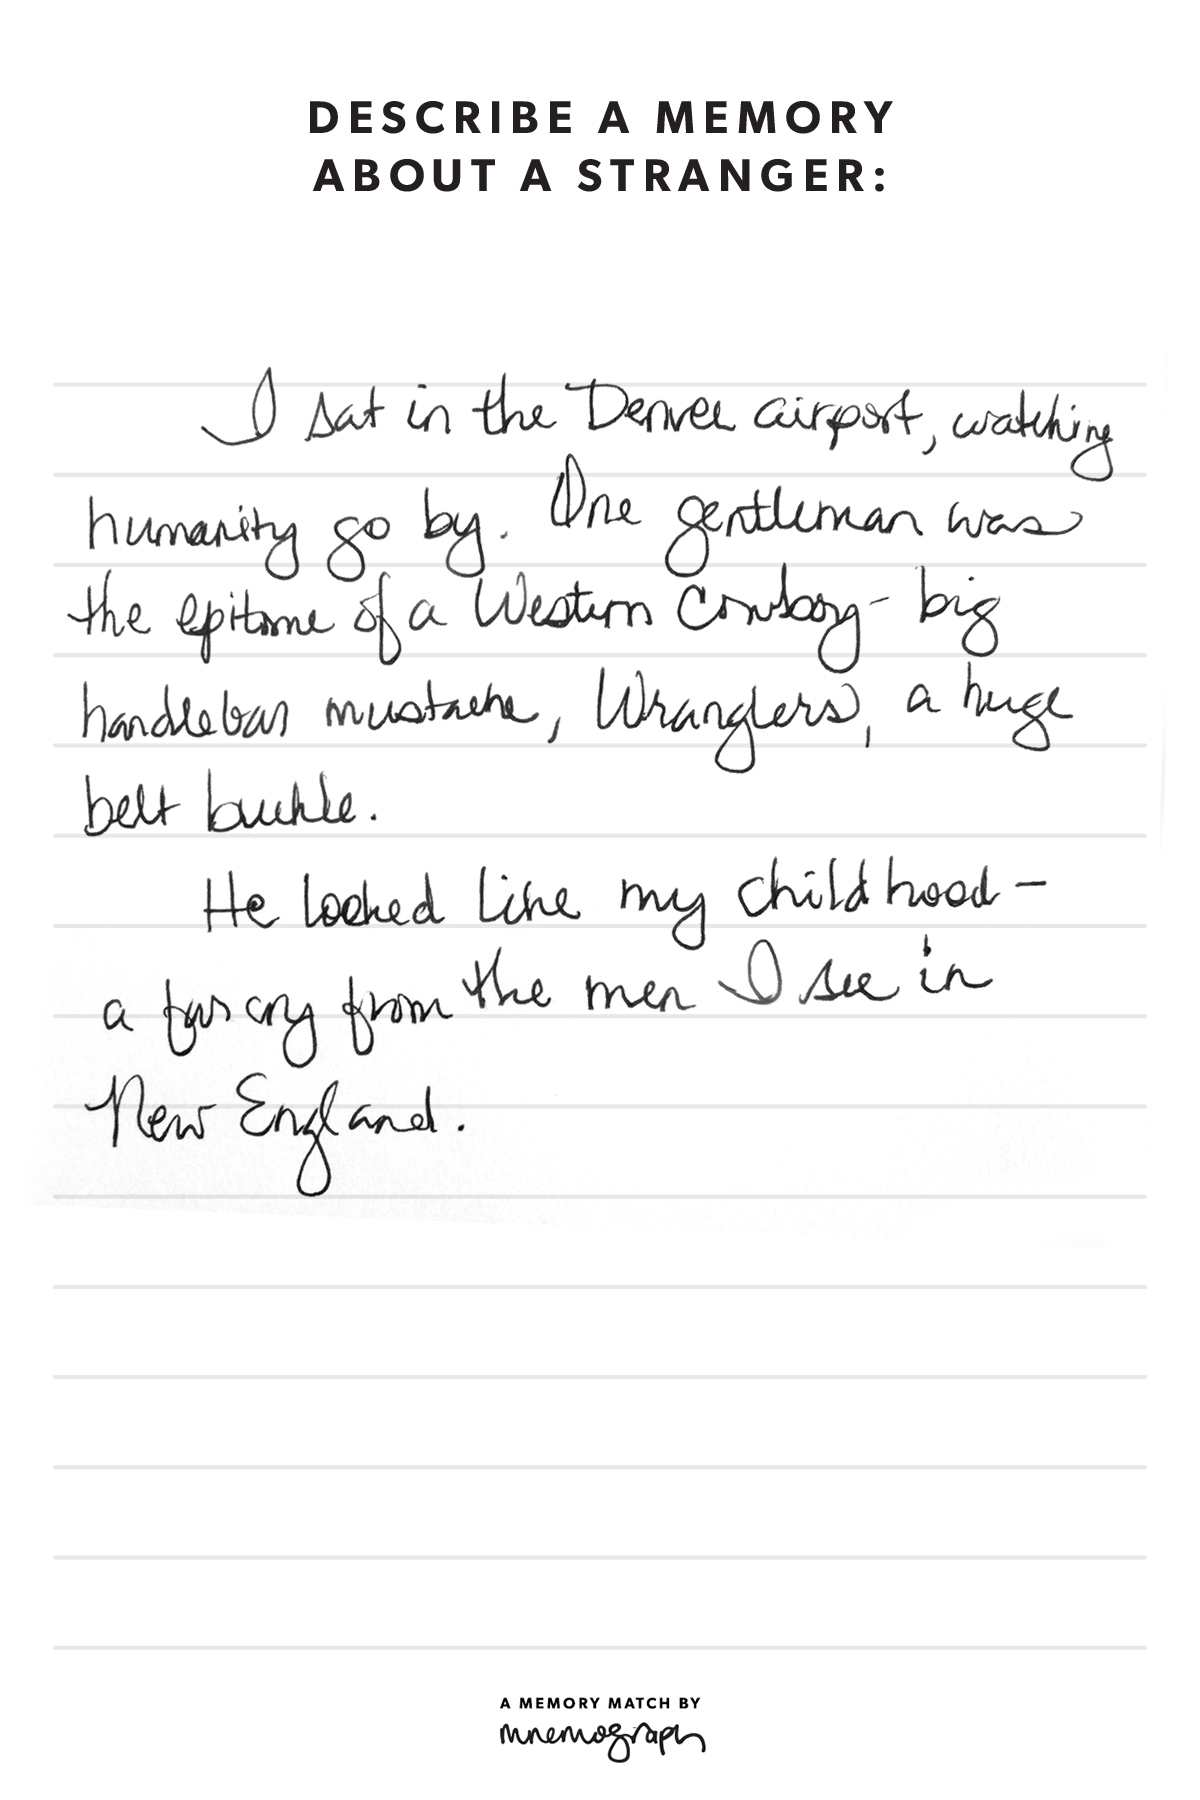 DESCRIBE A MEMORY
ABOUT A STRANGER:
I sat in the Denver airport, watching
humanity go by. One gentleman was
the epitome of a Western Cowboy - big
handlebar mustache, Wranglers, a huge
belt buckle.
He looked like my childhood -
a far cry from the men I see in
New England.
A MEMORY MATCH BY
mnemograph